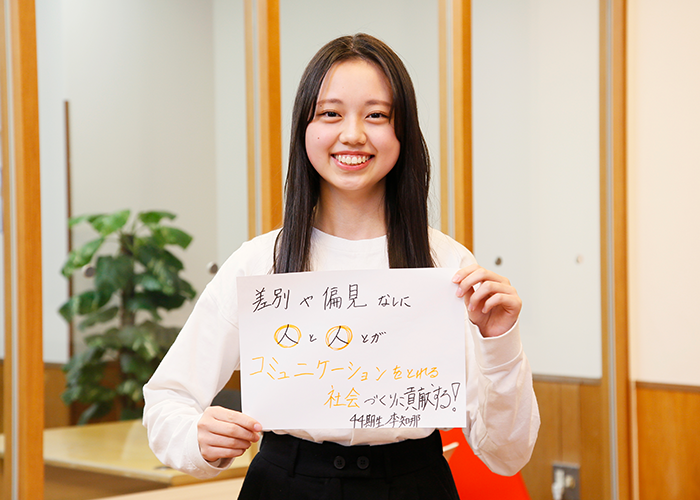 差別や偏見なしに
人と人とが
コミュニケーションをとれる
社会づくりに貢献する!
44期生 李知那